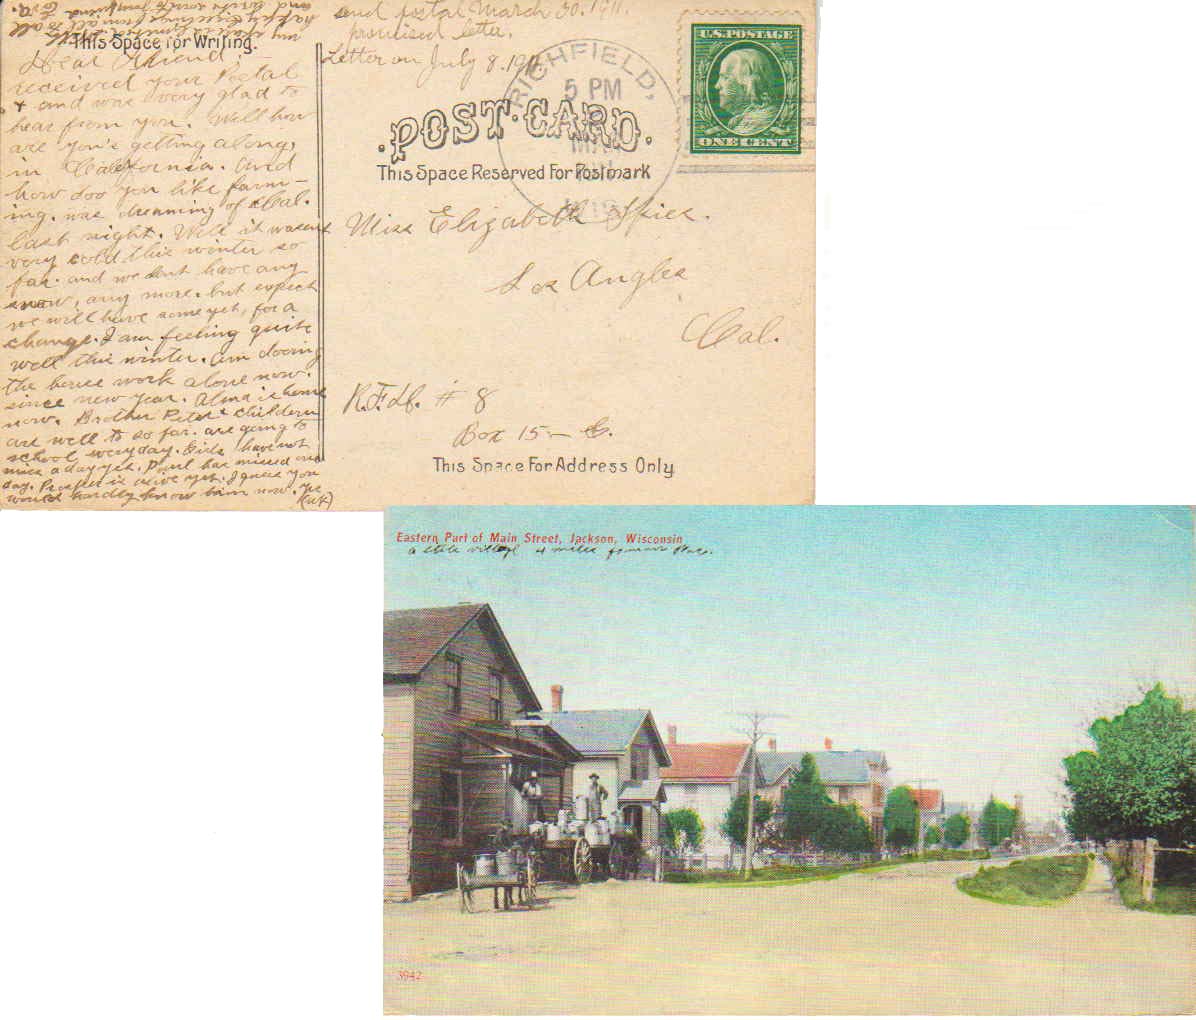 This Space for Writing.
Dear Friend:-
received your Postal
& and was very glad to
hear from you. Well how
are you's getting along,
in California. And
how doo you like farm-
ing. was dreaming of Cal.
last night. Well it wasent
very cold this winter so
far. and we dont have any
snow, any more. but expect
we will have some yet, for a
change. I am feeling quite
well this winter. am dooing
the house work alone now.
since new year. Alma is home
now. Brother Peter's children
are well to so far. are going to
school everyday. Girls have not
miss a day yet. Paul has missed one
day. is alive yet. I guess you
would hardly know him now.
send postal March 30. 1911.
promised letter.
Letter on July 8. 1911
RICHFIELD,
5 PM
MAR
1911
WIS.
U.S. POSTAGE
ONE CENT
POST-CARD.
This Space Reserved For Postmark
Miss Elizabeth Spies.
Los Angles
Cal.
R.F.D. # 8
Box 15-
This Space For Address Only
Eastern Part of Main Street, Jackson, Wisconsin
a little village 4 miles from our place.
3942